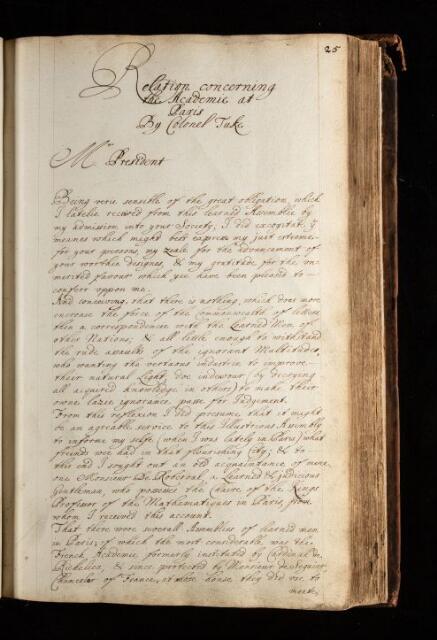 25
Relation concerning
the Academie at
Paris
By Colonel Tuke
Mr President
Being verie sensible of the great obligation, which
I latelie received from this learned Assemblie by
my admission into your Society, I did excogitat, by
meanes which might best express my just esteeme
for your persons, my zeale for the advancement of
your worthie designes, & my gratitude for the un
merited favour which yee have been pleased to
confer uppon me.
And conceiving, that there is nothing, which does more
increase the force of the Commonwealth of letters
then a correspondence with the Learned Men of
other Nations; & all little enough to withstand
the rude assaults of the ignorant Multitudes,
who wanting the vertuous industrie to improve
their natural Light, doe indeavour (by decrying
all acquired knowledge in others) to make their
owne lazie ignorance pass for Judgement.
From this reflexion I did presume that it might
be an agreable service to this Illustrious Assembly
to informe my selfe (when I was lately in Paris) what
friends wee had in that flourishing City; & to
this end I sought out an old acquaintance of mine
one Monsieur De Roberval, a Learned & judicious
Gentleman, who possesses the Chaire of the Kings
Professor of the Mathematiques in Paris, from
whom I received this account.
That there were severall Assemblies of learned men
in Paris, of which the most considerable was the
French Academie, formerly instituted by Cardinal de
Richelieu, & since protected by Monsieur de Seguier
Chancelor of France, at whose house they did use to
meet,